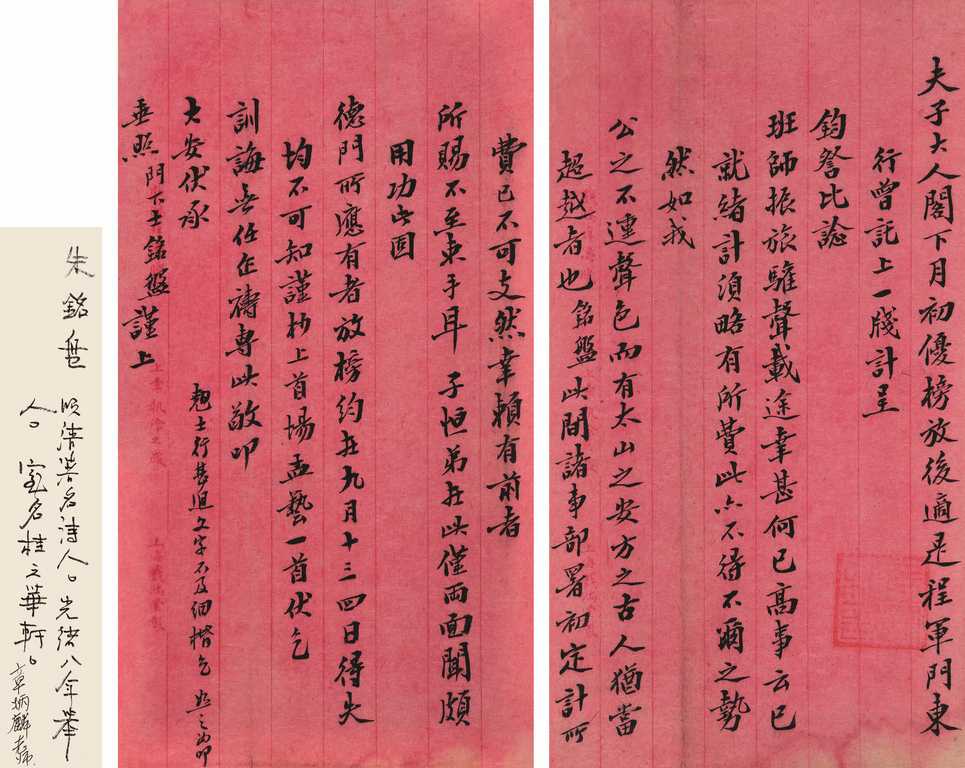 夫子大人閣下月初優榜放後適是程軍門東
行曾託上一牋計呈
鈞詧比諗
班師振旅驩聲載途幸甚何已高事云已
就緒計須略有所費此亦不得不爾之勢
然如我
公之不運聲色而有太山之安方之古人猶當
超越者也銘盤此間諸事部署初定計所
費已不可支然幸賴有前者
所賜不至束手耳子恒弟在此僅兩面聞頗
用功
德門所應有者放榜約在九月十三四日得失
均不可知謹抄上首場孟藝一首伏乞
訓誨無任企禱專此敬叩
大安伏承
垂照門下士銘盤謹上
行甚迫文字不及細楷乞
朱銘盤
清著名詩人。光緒八年舉
人。室名桂之華軒。
章炳麟